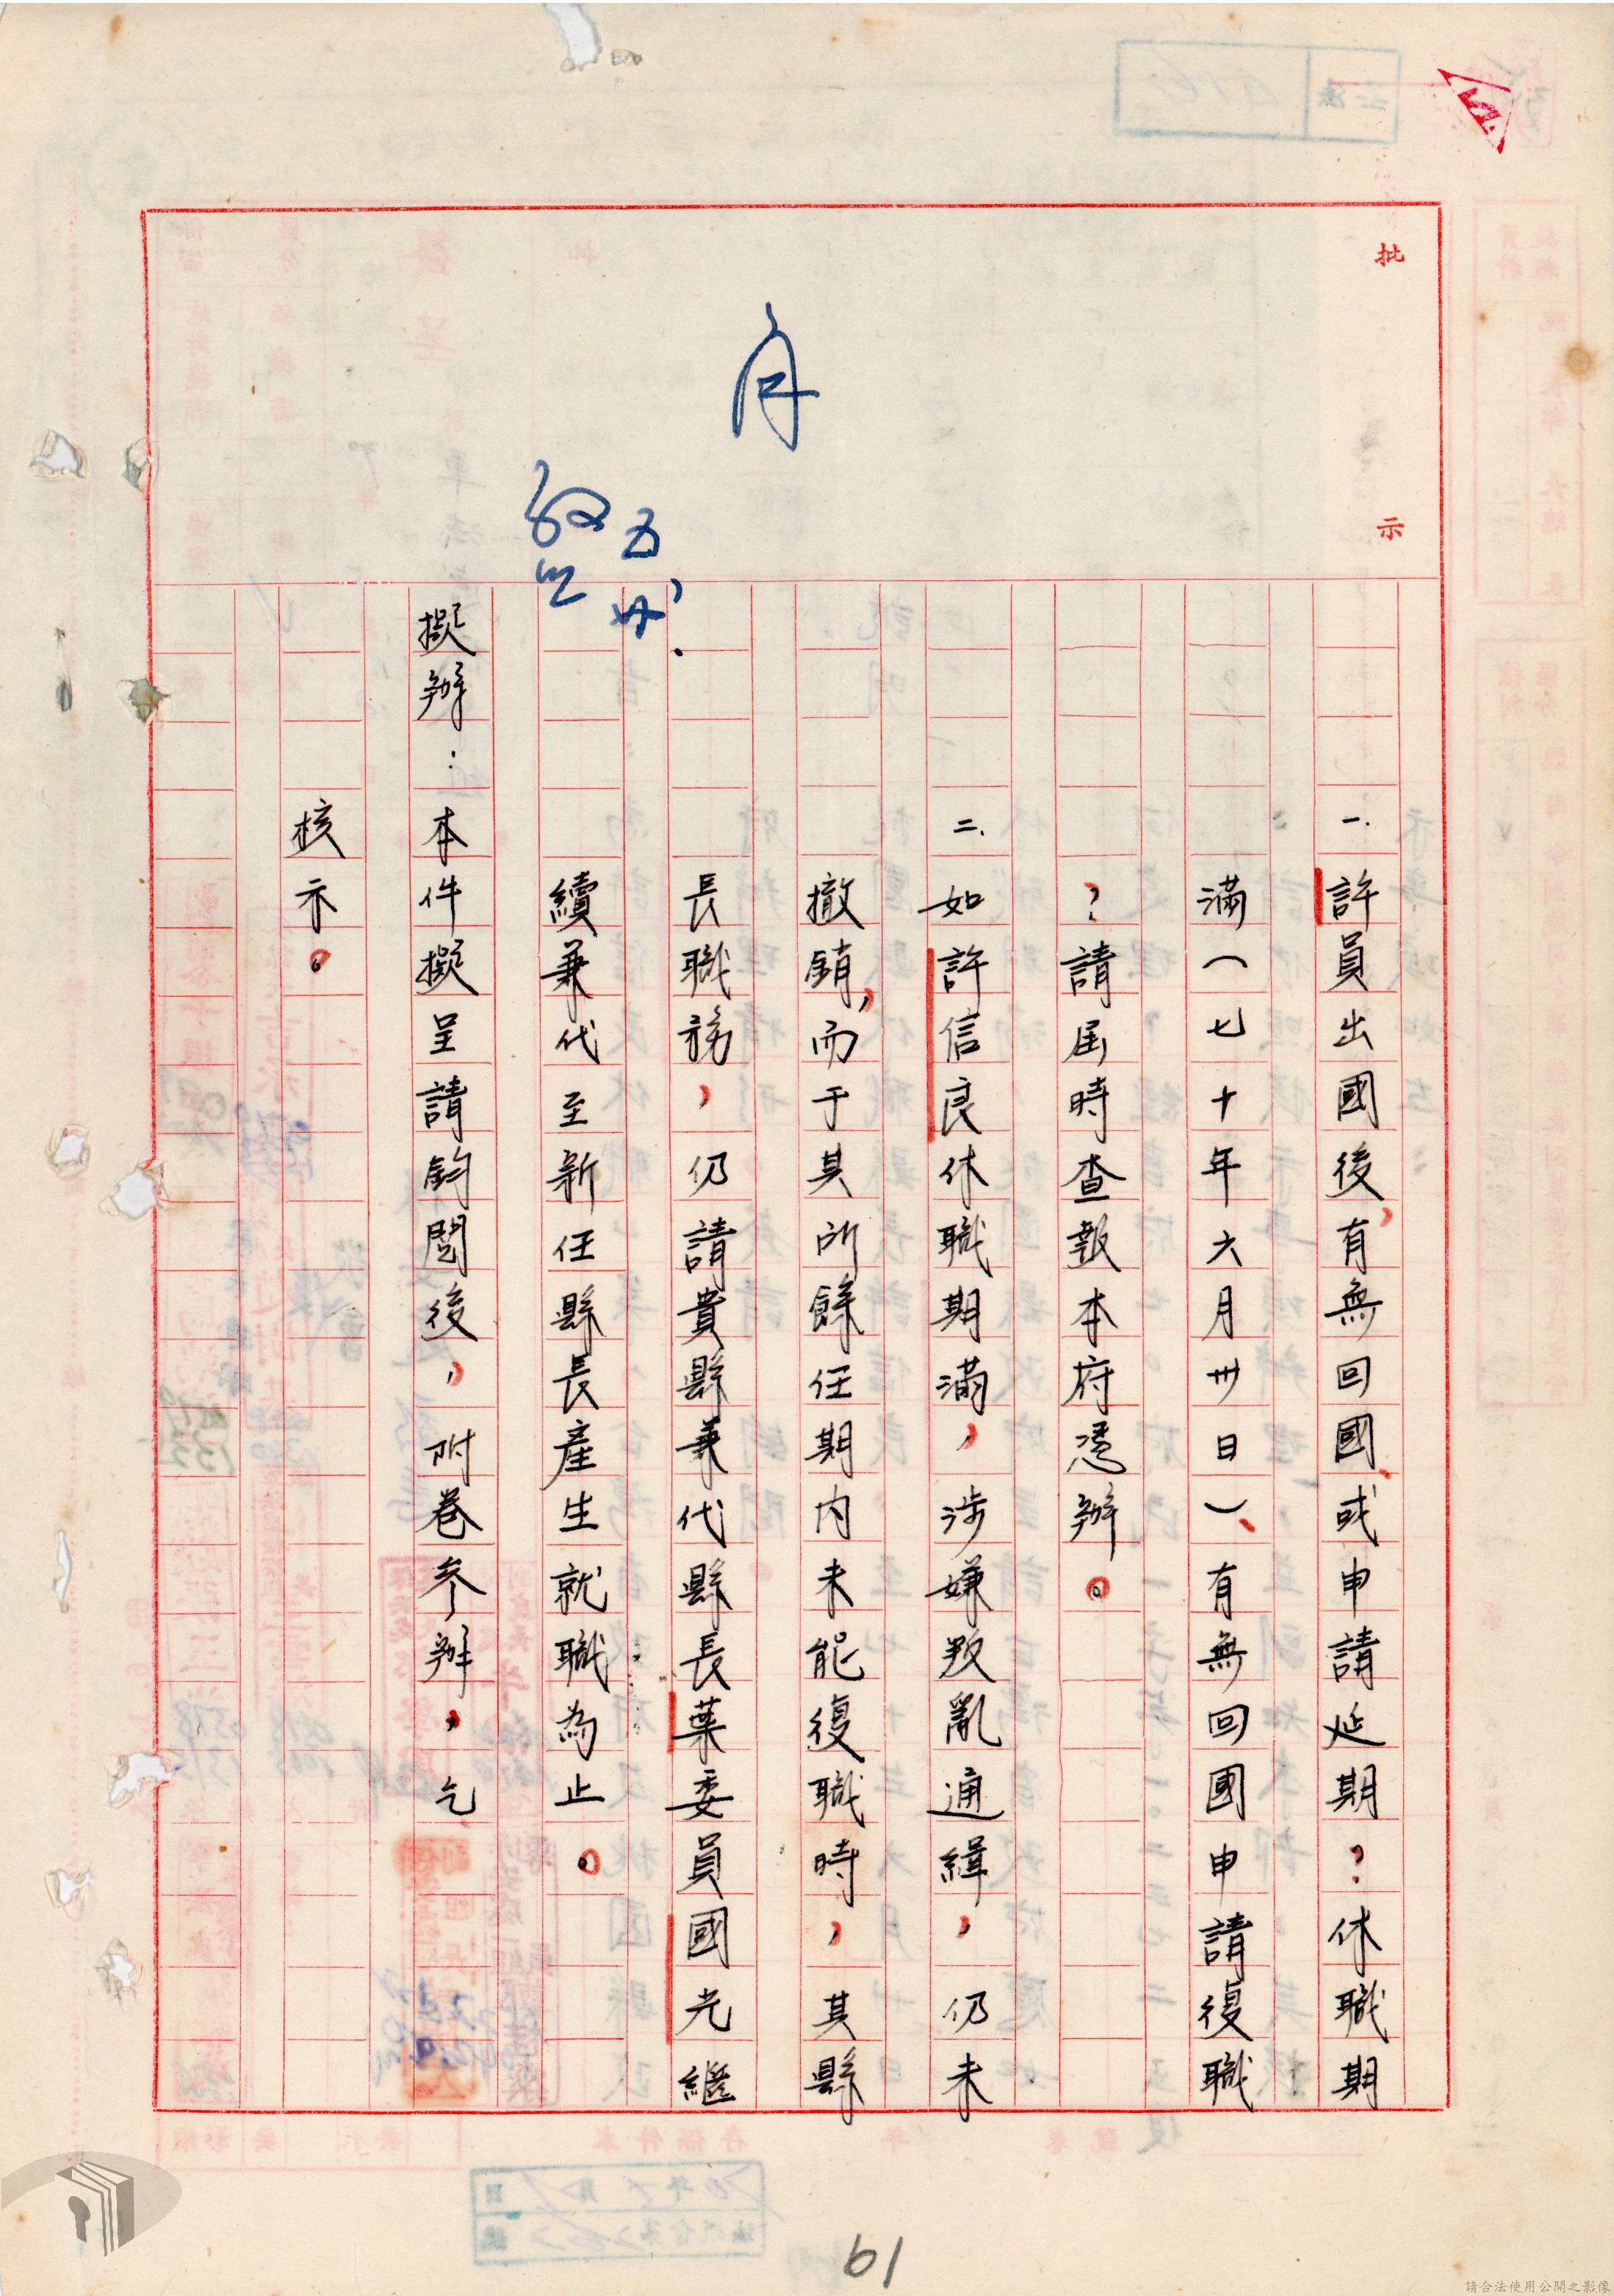 批示
一.許員出國後，有無回國、或申請延期？休職期
滿（七十年六月卅日）、有無回國申請復職
？請屆時查報本府憑辦。
二.如許信良休職期滿，涉嫌叛亂通緝，仍未
撤銷，而于其所餘任期內未能復職時，其縣
長職務，仍請貴縣兼代縣長葉委員國光繼
續兼代至新任縣長產生就職為止。
擬辦：本件擬呈請鈞閱後，附卷參辦，乞
核示。
五
61
請合法使用公開之影像